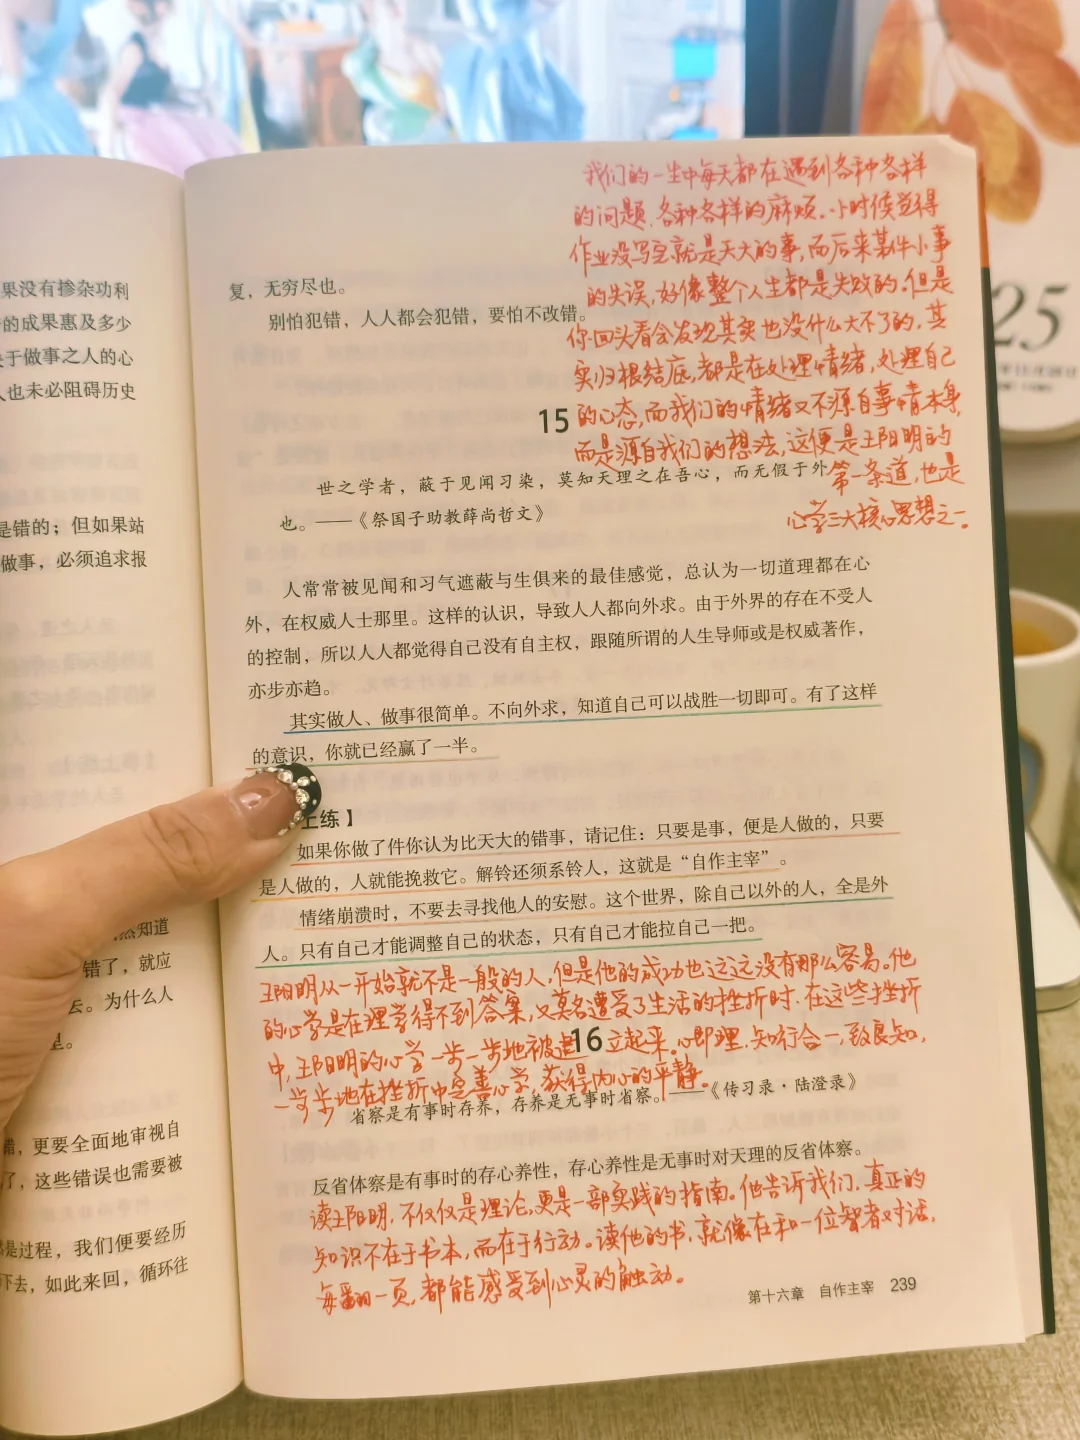 果没有掺杂功利
的成果惠及多少
于做事之人的心
人也未必阻碍历史
是错的；但如果站
做事，必须追求报
然知道
错了，就应
去。为什么人
里。
错，更要全面地审视自
了，这些错误也需要被
是过程，我们便要经历
下去，如此来回，循环往
我们的一生中每天都在遇到各种各样
的问题、各种各样的麻烦。小时候觉得
作业没写完就是天大的事，而后来某件小事
的失误，好像整个人生都是失败的。但是
你回头看会发现其实也没什么大不了的，其
实归根结底，都是在处理情绪，处理自己
的心态，而我们的情绪又不源自事情本身，
而是源自我们的想法，这便是王阳明的
第一条道，也是
心学三大核心思想之一。
复，无穷尽也。
别怕犯错，人人都会犯错，要怕不改错。
15
世之学者，蔽于见闻习染，莫知天理之在吾心，而无假于外
也。——《祭国子助教薛尚哲文》
人常常被见闻和习气遮蔽与生俱来的最佳感觉，总认为一切道理都在心
外，在权威人士那里。这样的认识，导致人人都向外求。由于外界的存在不受人
的控制，所以人人都觉得自己没有自主权，跟随所谓的人生导师或是权威著作，
亦步亦趋。
其实做人、做事很简单。不向外求，知道自己可以战胜一切即可。有了这样
的意识，你就已经赢了一半。
上练】
如果你做了件你认为比天大的错事，请记住：只要是事，便是人做的，只要
是人做的，人就能挽救它。解铃还须系铃人，这就是“自作主宰”。
情绪崩溃时，不要去寻找他人的安慰。这个世界，除自己以外的人，全是外
人。只有自己才能调整自己的状态，只有自己才能拉自己一把。
王阳明从一开始就不是一般的人，但是他的成功也远远没有那么容易。他
的心学是在理学得不到答案，又莫名遭受了生活的挫折时，在这些挫折
中，王阳明的心学一步一步地被建立起来。心即理，知行合一，致良知，
一步步地在挫折中完善心学，获得内心的平静。
16
省察是有事时存养，存养是无事时省察。——《传习录·陆澄录》
反省体察是有事时的存心养性，存心养性是无事时对天理的反省体察。
读王阳明，不仅仅是理论，更是一部实践的指南。他告诉我们，真正的
知识不在于书本，而在于行动。读他的书，就像在和一位智者对话，
每翻一页，都能感受到心灵的触动。
第十六章 自作主宰 239
25